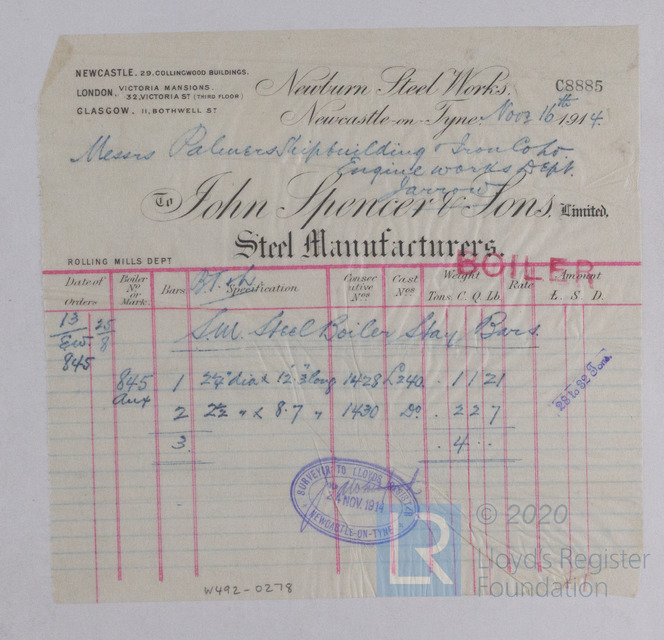 NEWCASTLE. 29. COLLINGWOOD BUILDINGS.
LONDON, VICTORIA MANSIONS,
32, VICTORIA ST (THIRD FLOOR)
GLASGOW, 11, BOTHWELL ST
Newburn Steel Works.
C8885
Newcastle-on-Tyne, Novr 16th 1914.
Messrs Palmers Shipbuilding & Iron Co Ld.
Engine Works Dept.
Jarrow
To John Spencer & Sons, Limited,
Steel Manufacturers.
ROLLING MILLS DEPT
BOILER
Date of Orders Boiler No or Mark. Bars Specification Consecutive Nos Cast Nos Weight Tons. C. Q. Lb. Rate Amount £. S. D.
13 25/8 S.M. Steel Boiler Stay Bars.
EW
845
845 1 2¼" dia x 12' 3" long 1428 L240 . 1 1 21
Aux
2 2½ " x 8.7 " 1430 Do . 2 2 7
3. . 4 . .
28 to 32 Tons.
SURVEYOR TO LLOYDS REGISTER
24 NOV. 1914
NEWCASTLE-ON-TYNE
LR
© 2020
Lloyd's Register
Foundation
W492-0278